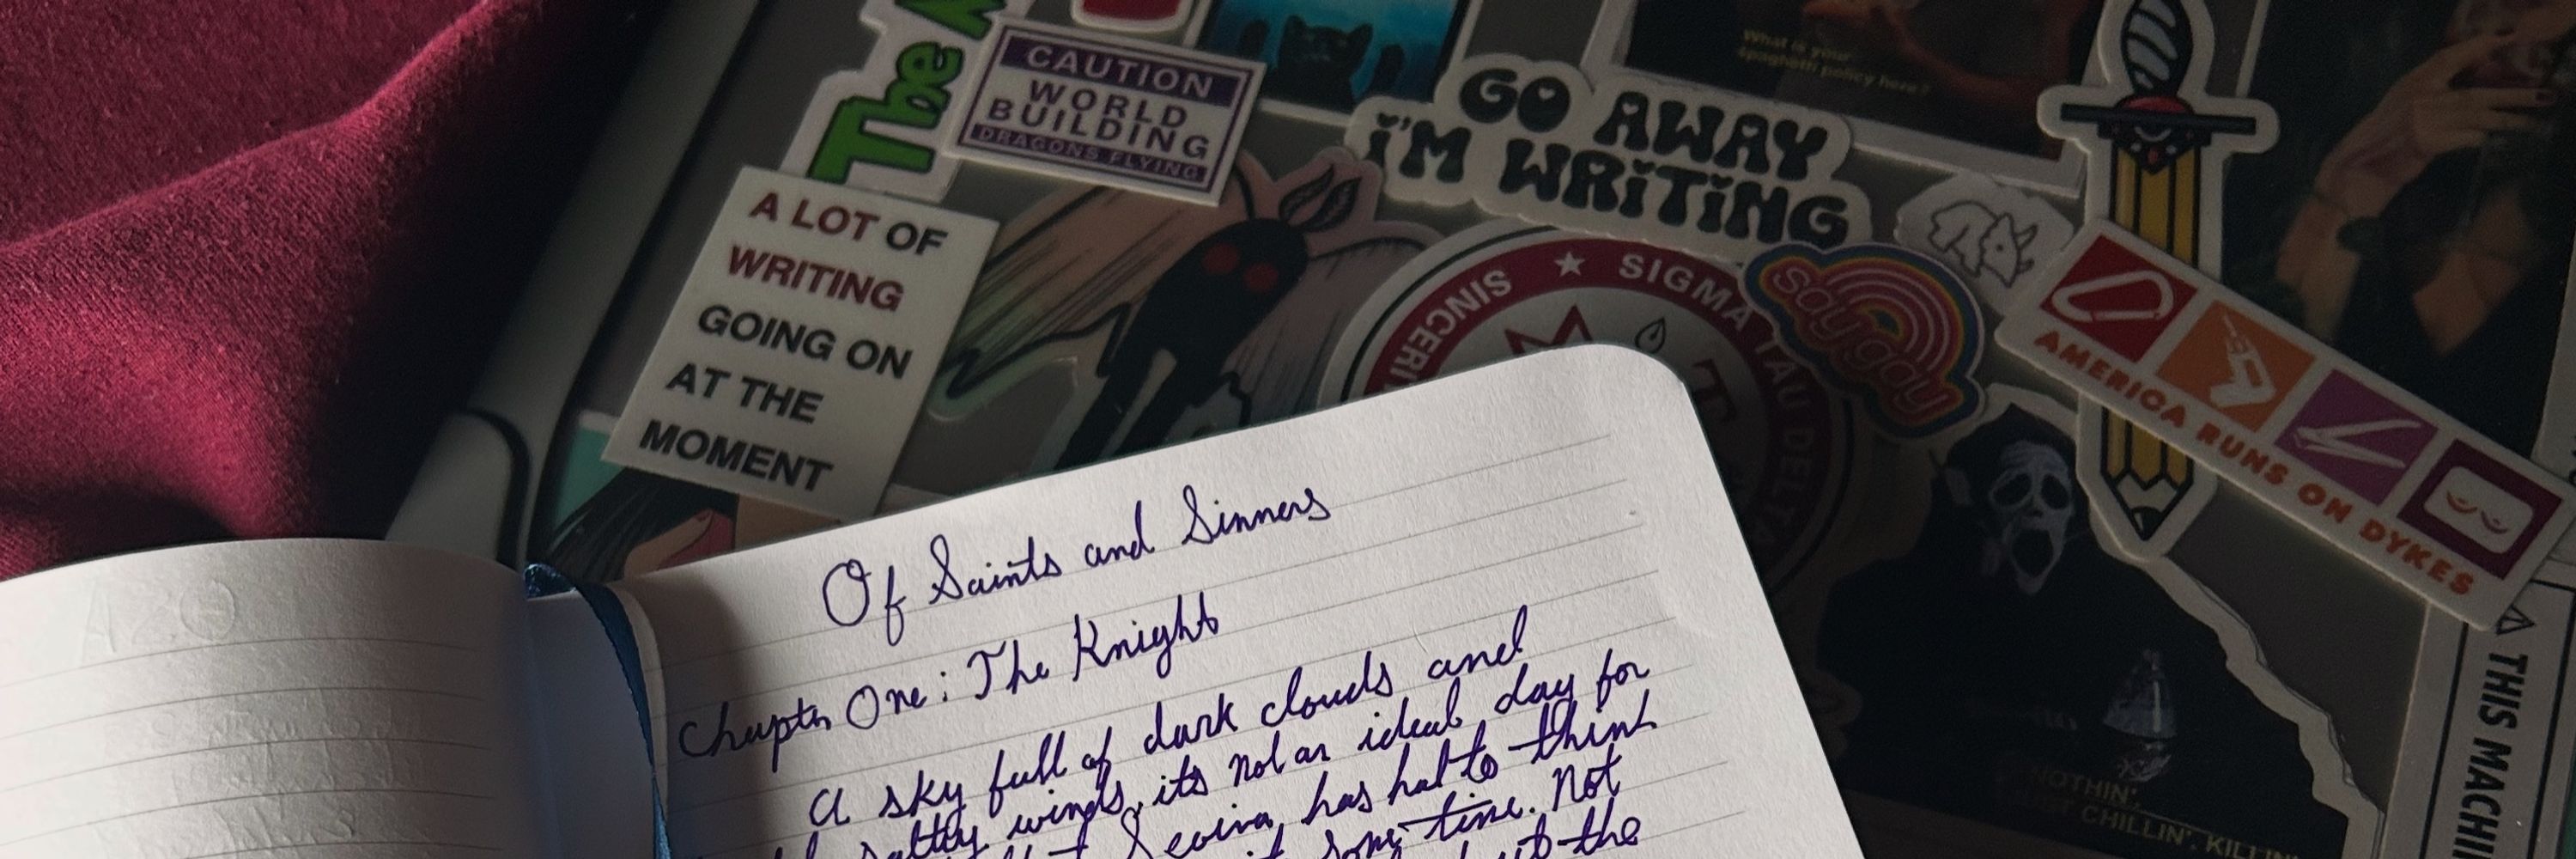 The
CAUTION
WORLD
BUILDING
DRAGONS FLYING
What is your
spaghetti policy here?
GO AWAY
I'M WRITING
A LOT OF
WRITING
GOING ON
AT THE
MOMENT
★ SIGMA TAU DELTA
say gay
AMERICA RUNS ON DYKES
THIS
NOTHIN',
CHILLIN',
Of Saints and Sinners
Chapter One: The Knight
A sky full of dark clouds and
salty winds, its not an ideal day for
has had to think
some time. Not
the